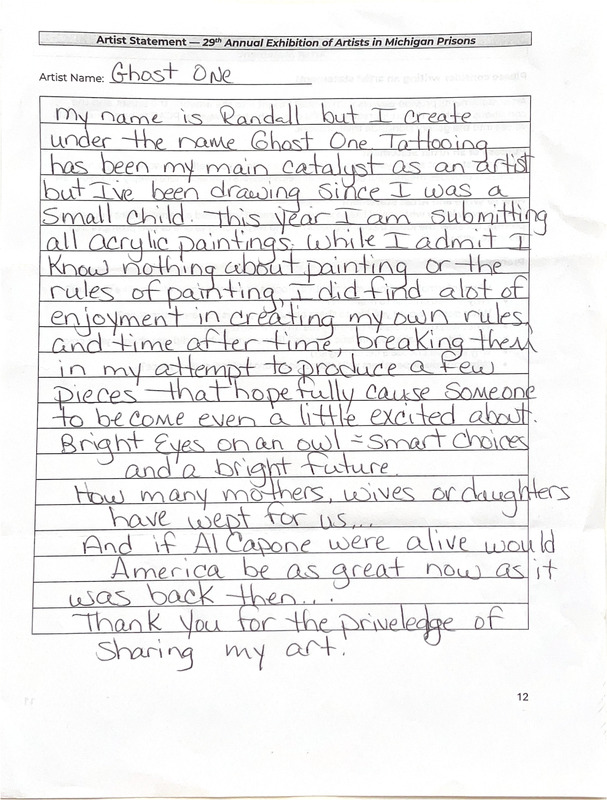 Artist Statement — 29th Annual Exhibition of Artists in Michigan Prisons
Artist Name: Ghost One
My name is Randall but I create
under the name Ghost One. Tattooing
has been my main catalyst as an artist
but I've been drawing since I was a
small child. This year I am submitting
all acrylic paintings. While I admit I
know nothing about painting or the
rules of painting, I did find alot of
enjoyment in creating my own rules
and time after time, breaking them
in my attempt to produce a few
pieces that hopefully cause someone
to become even a little excited about.
Bright Eyes on an owl = smart choices
and a bright future.
How many mothers, wives or daughters
have wept for us...
And if Al Capone were alive would
America be as great now as it
was back then...
Thank you for the priveledge of
sharing my art.
12